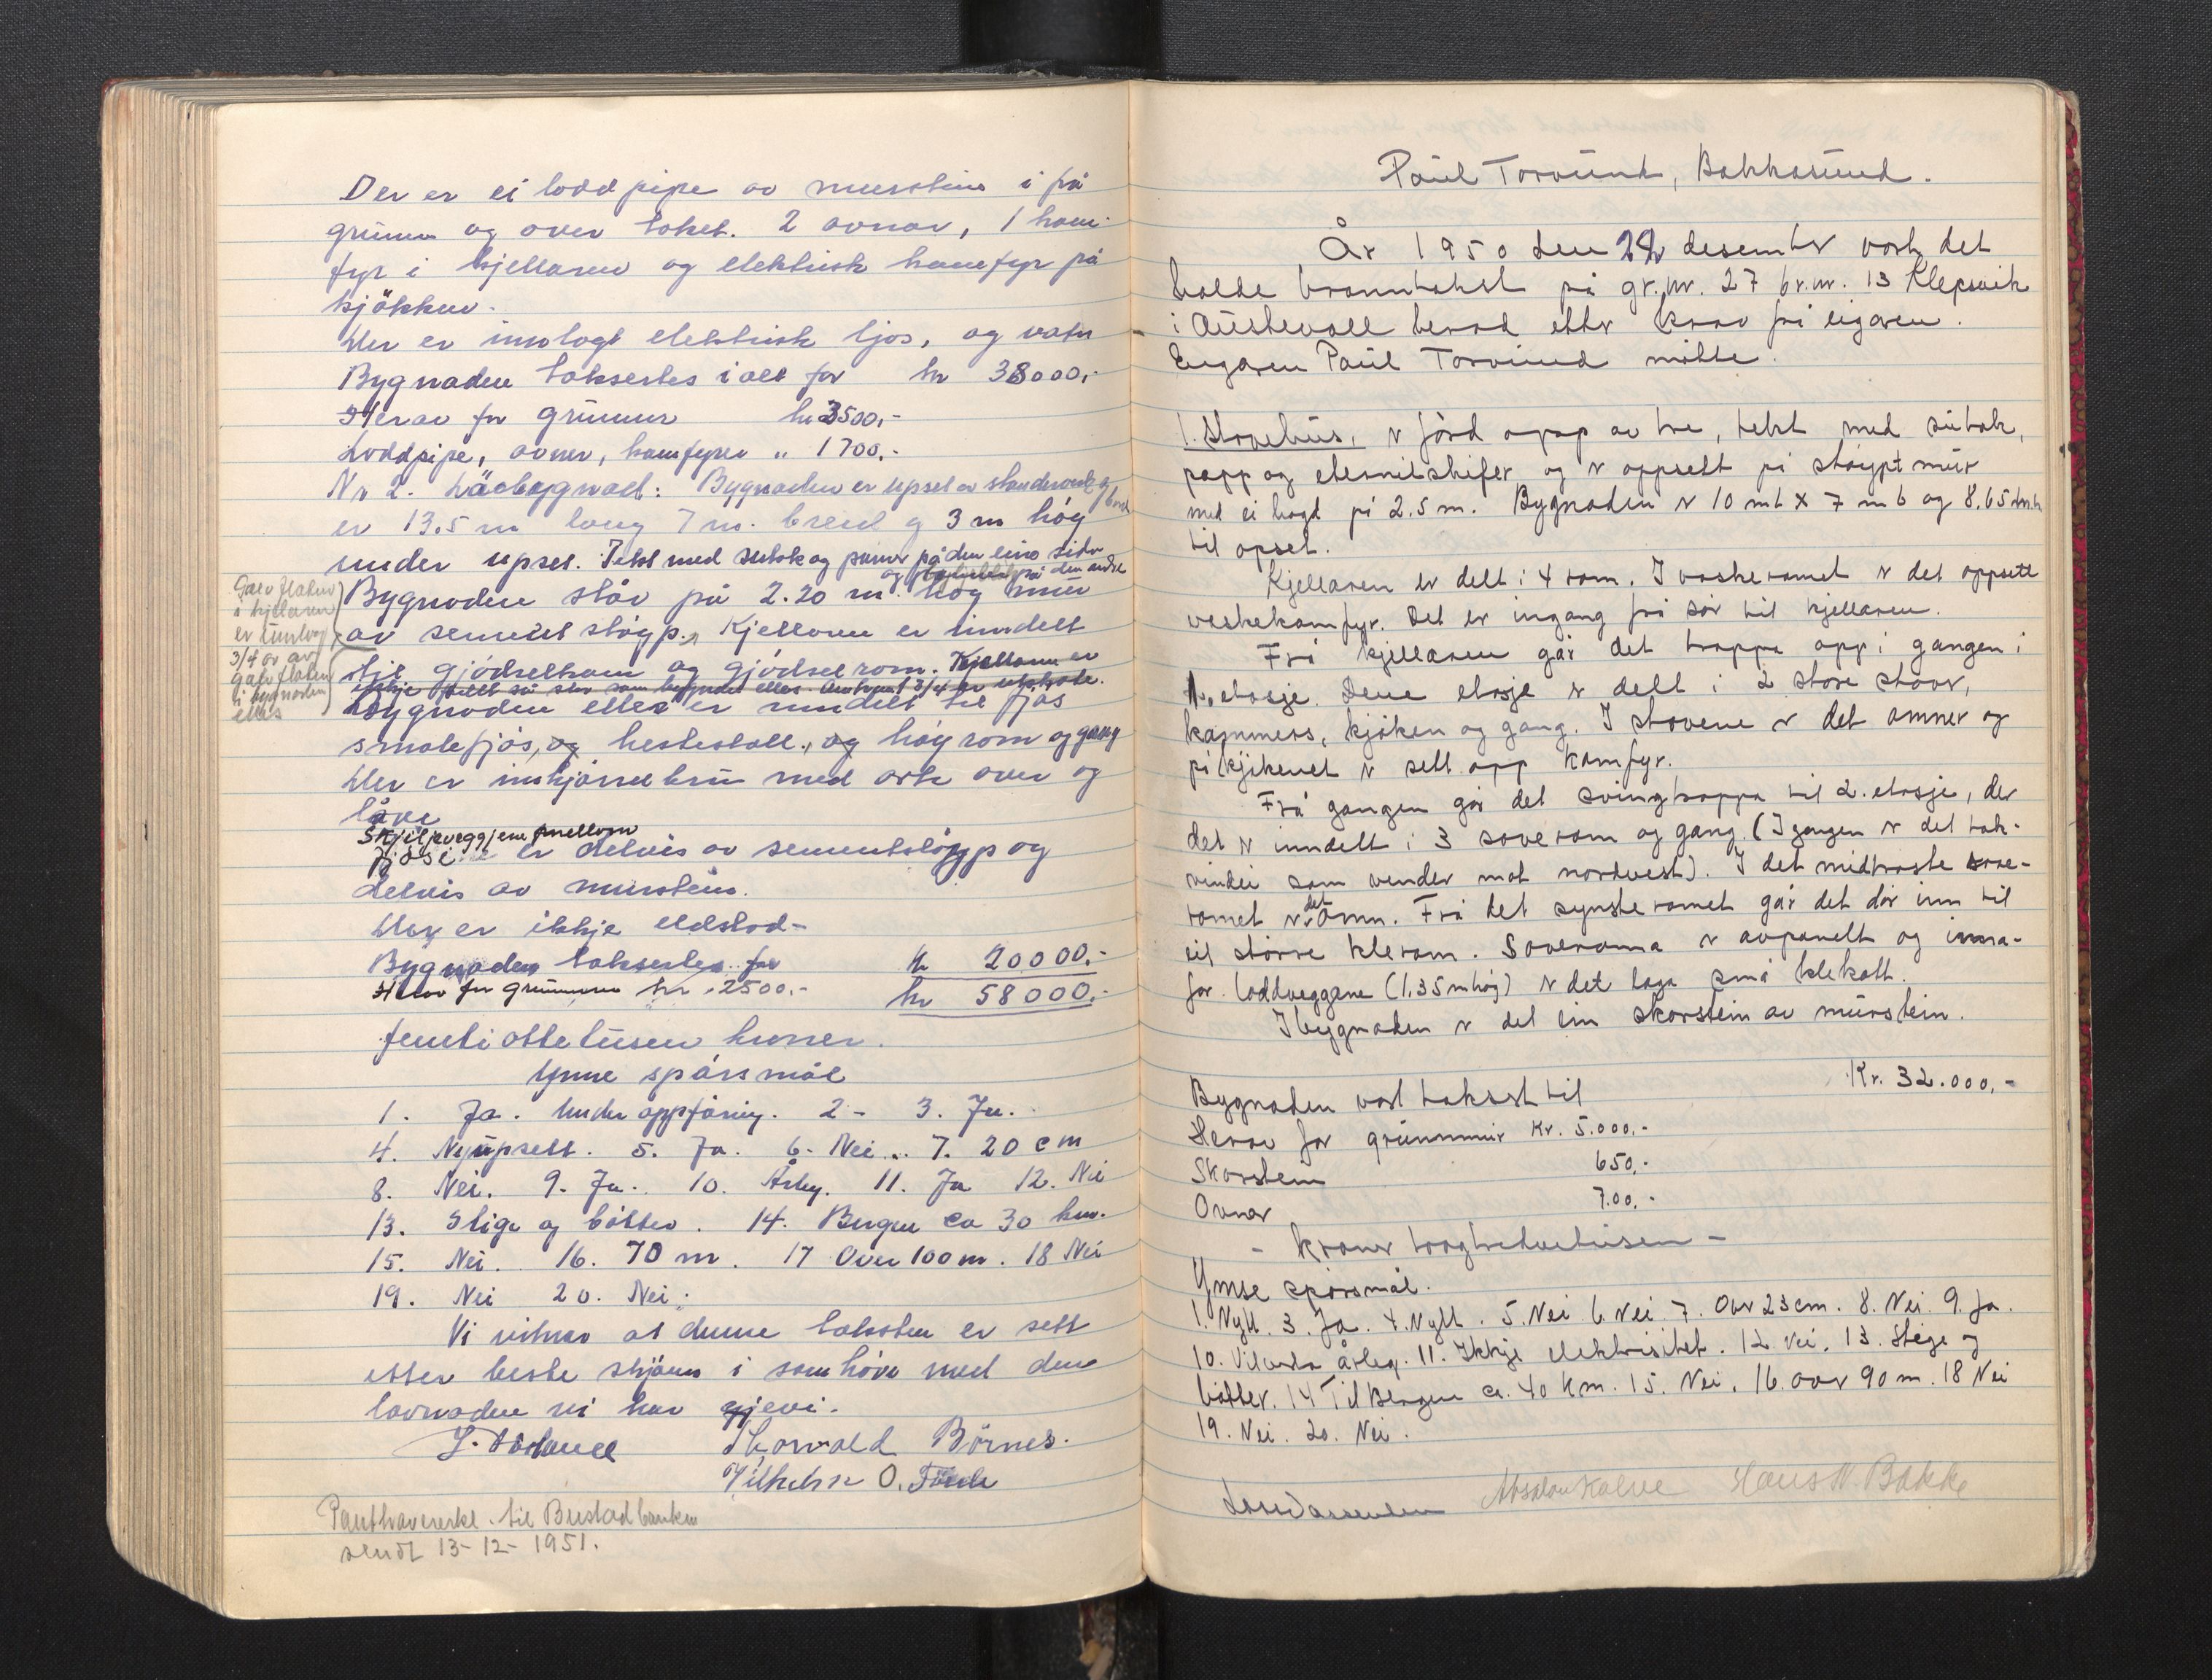 Der er ei loddpipe av murstein i frå
grunn og over taket. 2 ovnar, 1 kom-
fyr i kjellaren og elektrisk komfyr på
kjökken.
Der er innlagt elektrisk ljos, og vatn
Bygnaden taksertes i alt for kr 38000,-
Herav for grunnur kr 3500,-
Loddpipe, ovner, komfyrer " 1700,-
Nr 2. Löebygnad: Bygnaden er upset av standerverk og bord
er 13.5 m lang 7 m. breid og 3 m høg
under upset. Tekt med sutak og panner på den eine sida
og på den andre
Bygnaden står på 2.20 m. høg mur
av sement støyp. Kjellaren er inndelt
til gjödselkom og gjödsel rom. Kjellaren er
ikkje delt så stor som bygnaden elles. 3/4 er
Bygnaden elles er inndelt til fjøs
smalefjøs, og hestestall, og høy rom og gang
Der er innkjørsel bru med ark over og
låve
Skjiljeveggjene mellom
fjøsi er delvis av sementstöyp og
delvis av murstein.
Der er ikkje eldstad-
Bygnaden taksertes for kr 20000,-
Herav for grunnmur kr 2500.-
kr 58000,-
femti otte tusen kroner.
Ymse spörsmål
1. Ja. Under oppföring. 2 - 3. Ja.
4. Nyupsett. 5. Ja. 6. Nei. 7. 20 cm
8. Nei. 9. Ja. 10. Årleg. 11. Ja 12. Nei
13. Stige og bøtter. 14. Bergen ca 30 km.
15. Nei. 16. 70 m. 17 Over 100 m. 18 Nei
19. Nei 20. Nei.
Vi vitnar at denne taksten er sett
etter beste skjönn i samhøve med den
lovnaden vi har gjevi.
Thorvald Börnes.
Vilhelm O.
Golv flaten
i kjellaren
er innlag
3/4 av
golv flaten
i bygnaden
elles
Panthavererkl. til Bustadbanken
sendt 13-12-1951.
Paul Torsund, Bakkasund.
År 1950 den 22 desember vart det
halde branntakst på gr.nr. 27 br.nr. 13 Klepsvik
i Austevoll herad etter krav frå eigaren.
Eigaren Paul Torsund møtte.
1. Stovehus, er førd opp av tre, tekt med sutak,
papp og eternitskifer og er oppsett på støypt mur
med ei høgd på 2.5 m. Bygnaden er 10 m l x 7 m b og 8.65 m h
til opset.
Kjellaren er delt i 4 rom. I vaskeromet er det oppsett
veskekomfyr. Det er ingang frå sør til kjellaren.
Frå kjellaren går det trappe opp i gangen i
1. etasje. Dene etasje er delt i 2 store stover,
kammers, kjøken og gang. I stovene er det omner og
på kjøkenet er sett opp komfyr.
Frå gangen går det svingtrappa til 2. etasje, der
det er inndelt i 3 soverom og gang. (I gangen er det tak-
vindu som vender mot nordvest). I det midtraste sove-
romet er det omn. Frå det synste romet går det dør inn til
eit større klerom. Soveroma er avpanelt og inna-
for loddveggane (1.35 m høg) er det laga små klekott.
I bygnaden er det ein skorstein av murstein.
Bygnaden vart taksert til Kr. 32.000,-
Herav for grunnmur Kr. 5.000,-
Skorstein 650,-
Ovner 700,-
- Kroner trogtvedvetusen -
Ymse spørsmål.
1. Nytt. 3. Ja. 4. Nytt. 5. Nei 6. Nei 7. Over 23 cm. 8. Nei. 9. Ja.
10. årleg. 11. Ikkje elektrisitet. 12. Nei. 13. Stige og
bøtter. 14 Til Bergen ca. 40 Km. 15. Nei. 16. over 90 m. 18 Nei
19. Nei. 20. Nei.
Absalon Kalve Hans N. Bakke